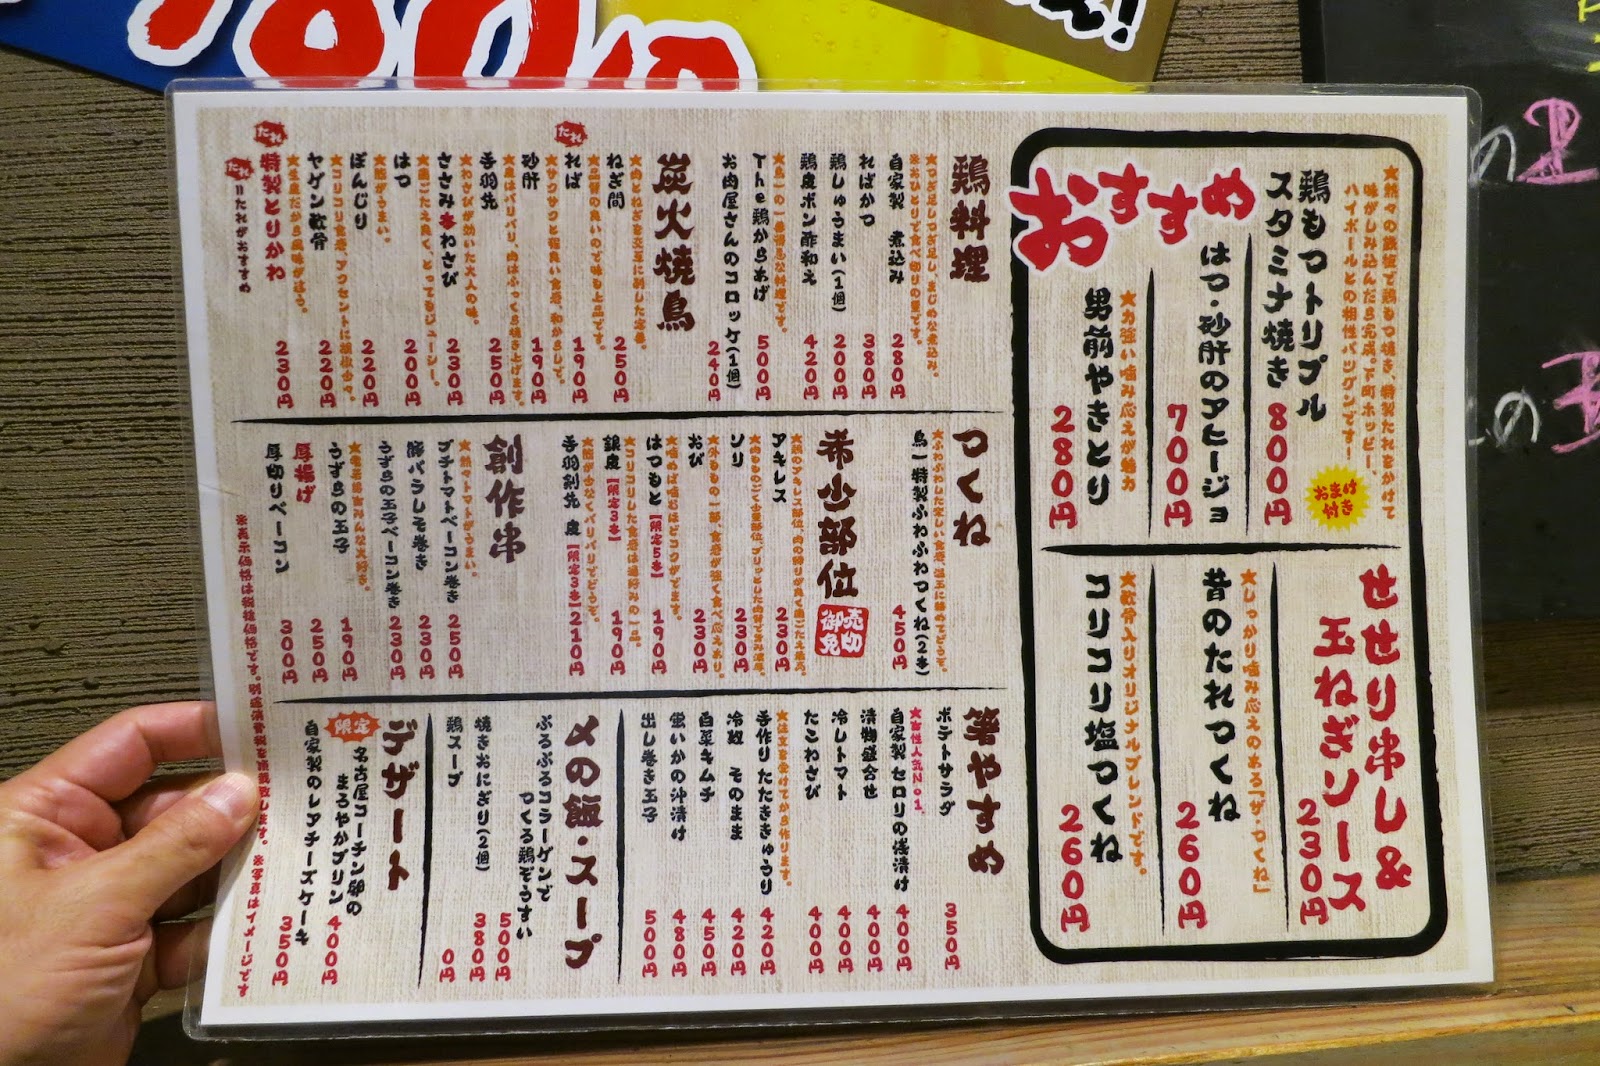 おすすめ
★熱々の鉄板で鶏もつ焼き、特製たれをかけて
味がしみ込んだら完成。下町ホッピー、
ハイボールとの相性バツグンです!
鶏もつトリプル
スタミナ焼き
800円
おまけ
付き
はつ・砂肝のアヒージョ
700円
★力強い噛み応えが魅力
男前やきとり
280円
せせり串し&
玉ねぎソース
230円
★しっかり噛み応えのある「ザ・つくね」
昔のたれつくね
260円
★軟骨入りオリジナルブレンドです。
コリコリ塩つくね
260円
鶏料理
★つぎ足しつぎ足し、まじめな煮込み。
※おひとりで食べ切りの量です。
自家製 煮込み
280円
ればかつ
380円
鶏しゅうまい(1個)
200円
鶏皮ポン酢和え
420円
★鳥一の一番得意な料理です。
The鶏からあげ
500円
お肉屋さんのコロッケ(1個)
240円
炭火焼鳥
★肉とねぎを交互に刺した定番。
ねぎ間
250円
★品質の良いので味も上品です。
たれ
ればー
190円
★サクサクと程良い食感、和からしで。
砂肝
190円
★皮はパリパリ、肉はふっくら焼き上げます。
手羽先
250円
★わさびが効いた大人の味。
ささみ本わさび
230円
★歯ごたえ良く、とってもジューシー。
はつ
200円
★脂がうまい。
ぼんじり
220円
★コリコリ食感、アクセントに柚子胡椒。
ヤゲン軟骨
220円
★生皮だから風味がちがう。
たれ
特製とりかわ
230円
たれ=たれがおすすめ
つくね
★ふわふわした楽しい食感、温玉に絡めてどうぞ。
鳥一特製ふわふわつくね(2本)
450円
希少部位
売切
御免
アキレス
230円
ソリ
230円
おび
230円
★噛めば噛むほどコクがでます。
はつもと【限定5本】
190円
★コリコリした食感は通好みの一品。
銀皮【限定3本】
190円
★脂が少なくパリパリでどうぞ。
手羽剣先 皮【限定3本】
210円
創作串
★熱々トマトがうまい。
プチトマトベーコン巻き
250円
豚バラしそ巻き
230円
うずらの玉子ベーコン巻き
230円
★老若男女みんな大好き。
うずらの玉子
190円
厚揚げ
250円
厚切りベーコン
300円
箸やすめ
ポテトサラダ
350円
★女性人気No1。
自家製 セロリの浅漬け
400円
漬物盛合せ
400円
冷しトマト
400円
たこわさび
400円
★注文を受けてから作ります。
手作り たたききゅうり
420円
冷奴 そのまま
420円
白菜キムチ
450円
蛍いかの沖漬け
480円
出し巻き玉子
500円
〆の飯・スープ
ぷるぷるコラーゲンで
つくる鶏ぞうすい
500円
焼きおにぎり(2個)
380円
鶏スープ
0円
デザート
限定
名古屋コーチン卵の
まろやかプリン
400円
自家製のレアチーズケーキ
350円
※表示価格は税抜価格です。別途消費税を頂戴致します。 ※写真はイメージです